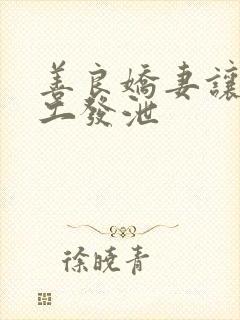 善良嬌妻讓
工發泄
徐曉青